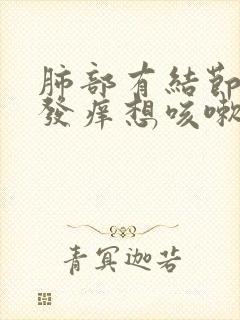 肺部有結節
發痒想咳嗽
青冥迦若